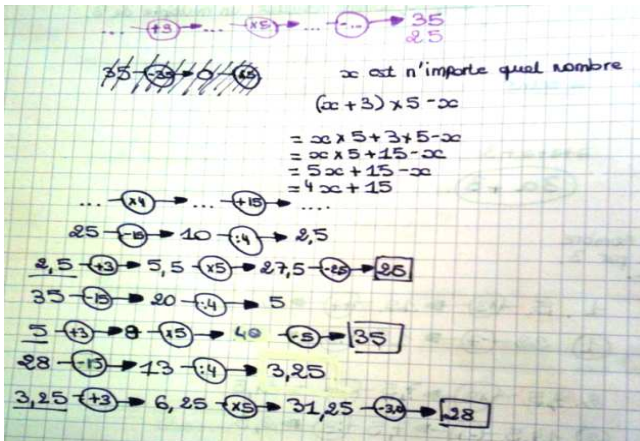 ... +3 ... ×5 ... -... 35
25
35 -35 0
x est n'importe quel nombre
(x+3)×5-x
= x×5+3×5-x
= x×5+15-x
= 5x+15-x
= 4x+15
... ×4 ... +15 ....
25 -15 10 :4 2,5
2,5 +3 5,5 ×5 27,5 -2,5 25
35 -15 20 :4 5
5 +3 8 ×5 40 -5 35
28 -15 13 :4 3,25
3,25 +3 6,25 ×5 31,25 28